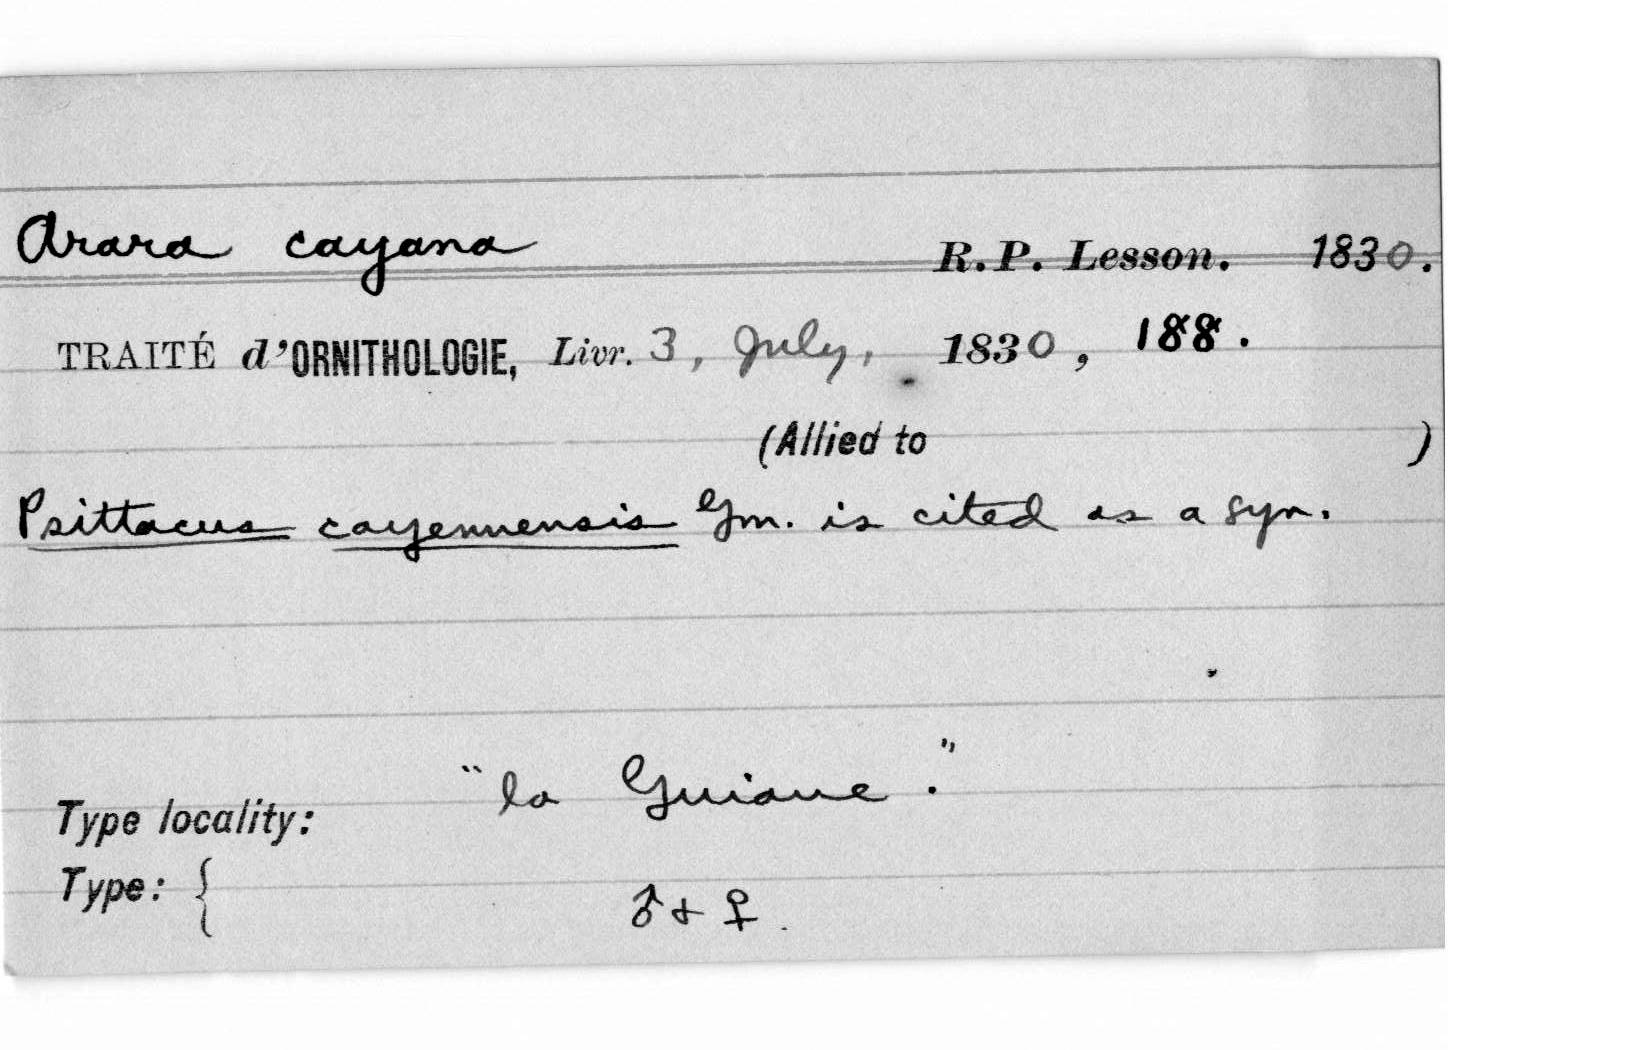 Arara cayana R.P. Lesson. 1830.
TRAITÉ d'ORNITHOLOGIE, Livr. 3, July, 1830, 188.
(Allied to )
Psittacus cayennensis Gm. is cited as a syn.
Type locality: "la Guiane."
Type: { ♂ & ♀.